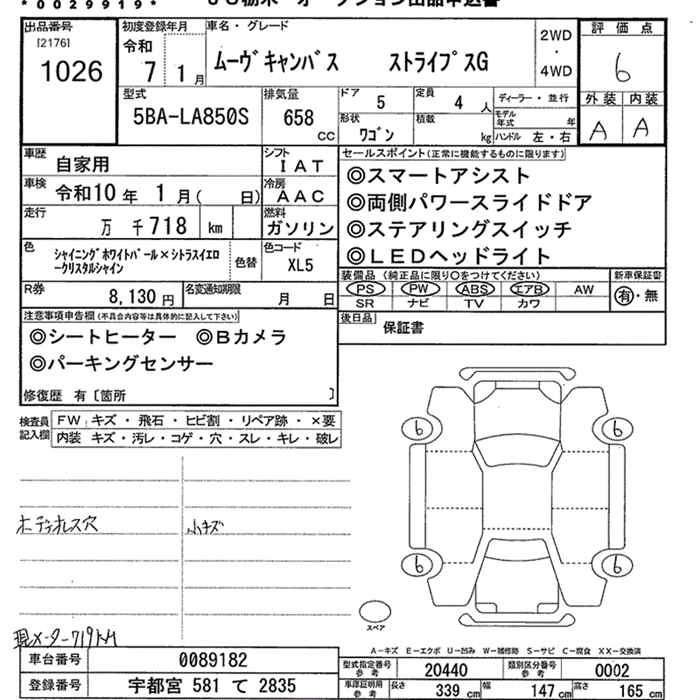 *0029919*
出品番号
[2176]
1026
初度登録年月
令和
7 1月
車名・グレード
ムーヴキャンバス ストライプスG
2WD
・
4WD
評価点
6
外装 内装
A A
型式
5BA-LA850S
排気量
658
CC
ドア
5
定員
4 人
ディーラー・並行
形状
ワゴン
積載
kg
モデル年式 年
ハンドル 左・右
車歴
自家用
シフト
IAT
車検
令和10年 1月( 日)
冷房
AAC
走行
万 千718 km
燃料
ガソリン
色
シャイニングホワイトパール×シトラスイエロ
ークリスタルシャイン
色替
色コード
XL5
R券
8,130円
名変通知期限
月 日
セールスポイント(正常に機能するものに限ります)
◎スマートアシスト
◎両側パワースライドドア
◎ステアリングスイッチ
◎LEDヘッドライト
装備品(純正品に限り○をつけてください)
PS PW ABS エアB AW
SR ナビ TV カワ
新車保証書
有・無
後日品
保証書
注意事項申告欄(不具合内容等は具体的に記入して下さい)
◎シートヒーター ◎Bカメラ
◎パーキングセンサー
修復歴 有〔箇所 〕
検査員
記入欄
FW キズ・飛石・ヒビ割・リペア跡・×要
内装 キズ・汚レ・コゲ・穴・スレ・キレ・破レ
ホディオレス穴
小キズ
現メーター719KM
6 6
6 6
スペア
A-キズ E-エクボ U-凹み W-補修跡 S-サビ C-腐食 XX-交換済
車台番号
0089182
登録番号
宇都宮 581 て 2835
型式指定番号
参考
20440
類別区分番号
参考
0002
車庫証明用
参考
長さ
339 cm
幅
147 cm
高さ
165 cm